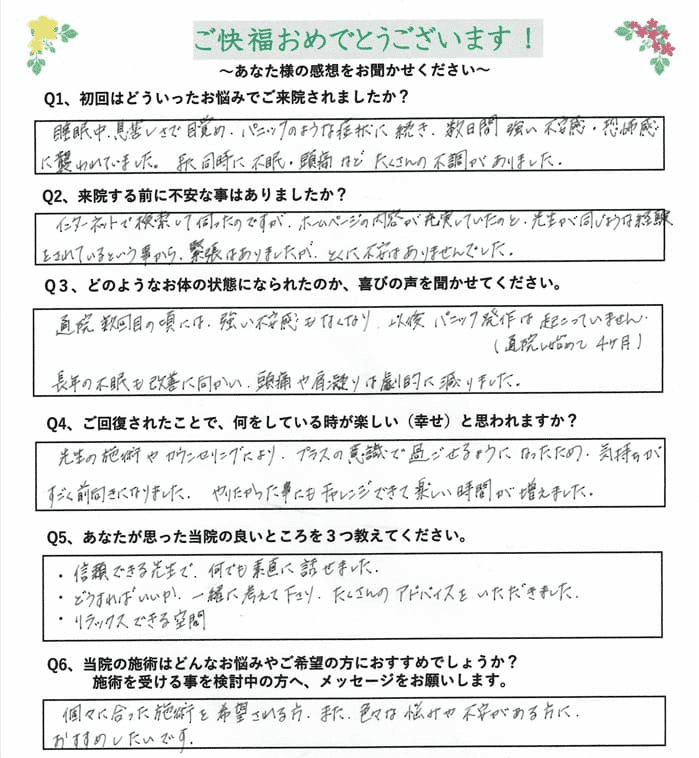 ご快福おめでとうございます！
～あなた様の感想をお聞かせください～
Q1、初回はどういったお悩みでご来院されましたか？
睡眠中、息苦しさで目覚め、パニックのような症状に続き、数日間強い不安感・恐怖感
に襲われていました。又、同時に不眠・頭痛などたくさんの不調がありました。
Q2、来院する前に不安な事はありましたか？
インターネットで検索して伺ったのですが、ホームページの内容が充実していたのと、先生が同じような経験
をされているという事から、緊張はありましたが、とくに不安はありませんでした。
Q３、どのようなお体の状態になられたのか、喜びの声を聞かせてください。
通院数回目の頃には、強い不安感もなくなり、以後パニック発作は起こっていません。
（通院し始めて4ヶ月）
長年の不眠も改善に向かい、頭痛や肩凝りは劇的に減りました。
Q4、ご回復されたことで、何をしている時が楽しい（幸せ）と思われますか？
先生の施術やカウンセリングにより、プラスの意識で過ごせるようになったため、気持ちが
すごく前向きになりました。やりたかった事にもチャレンジできて楽しい時間が増えました。
Q5、あなたが思った当院の良いところを３つ教えてください。
・信頼できる先生で、何でも素直に話せました。
・どうすればいいか、一緒に考えて下さり、たくさんのアドバイスをいただきました。
・リラックスできる空間
Q6、当院の施術はどんなお悩みやご希望の方におすすめでしょうか？
施術を受ける事を検討中の方へ、メッセージをお願いします。
個々に合った施術を希望される方、また、色々な悩みや不安がある方に、
おすすめしたいです。